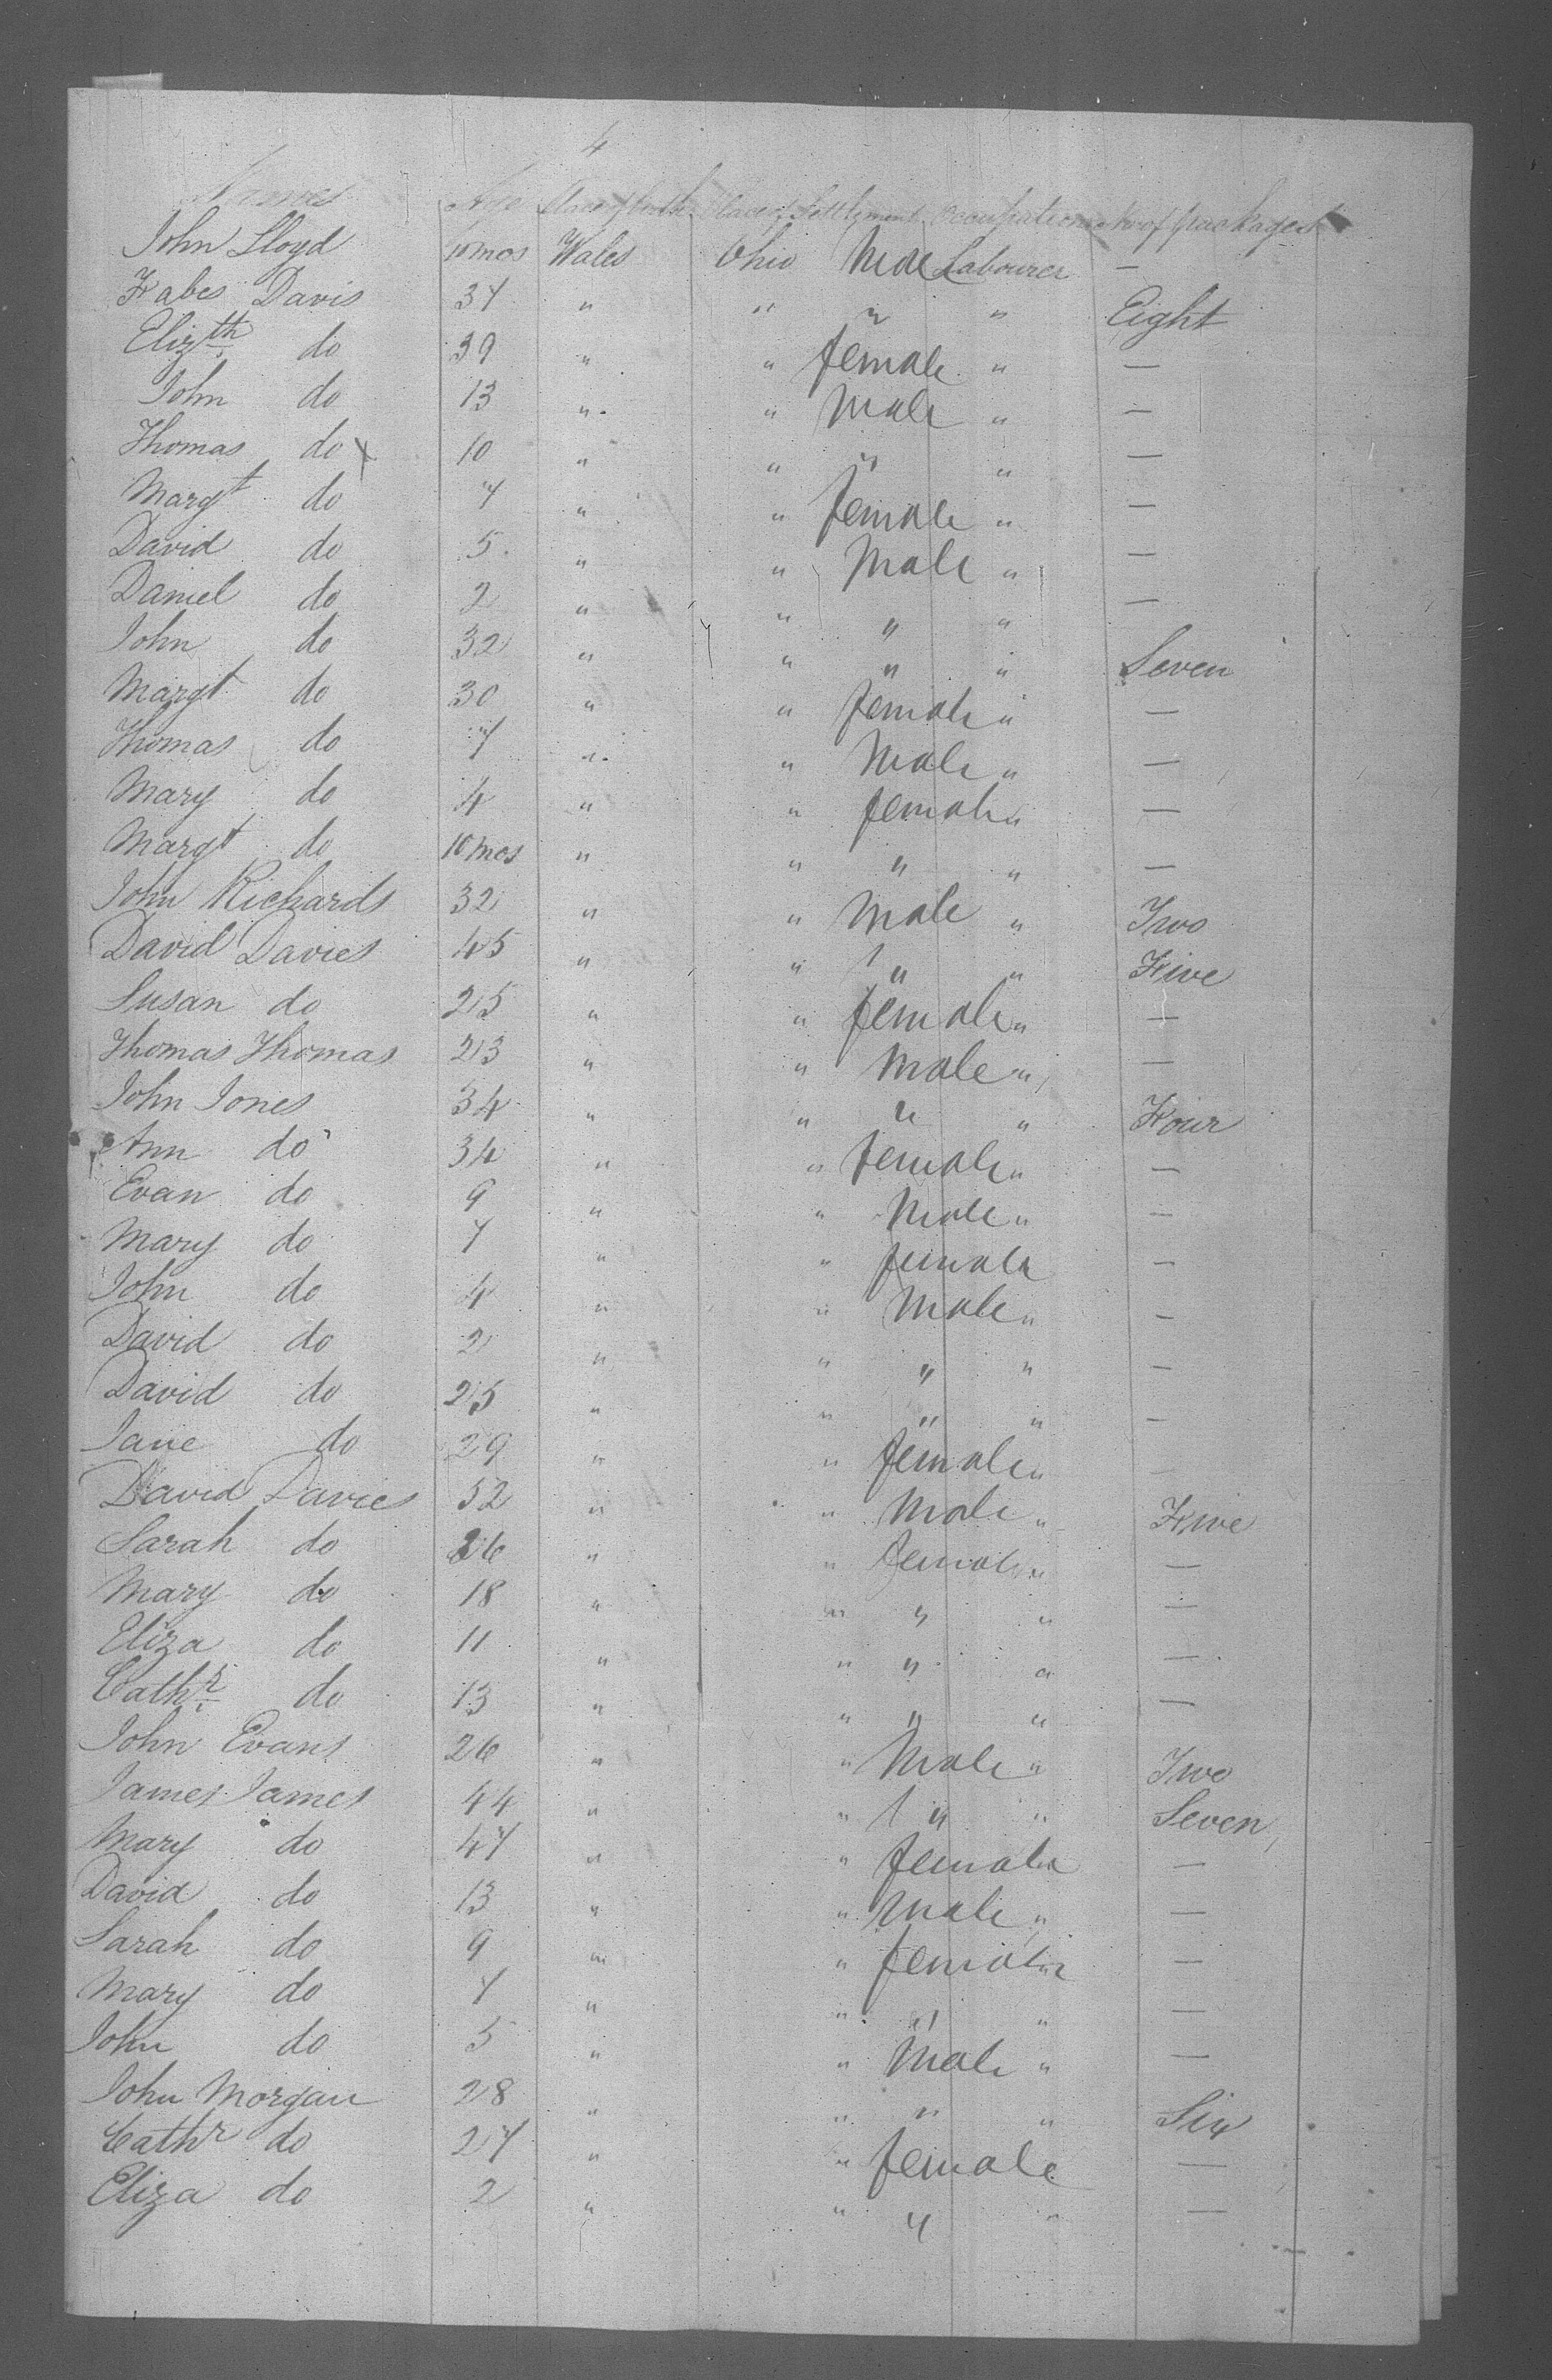 4
Names Age Place of birth Place of Settlement Occupation No of packages
John Lloyd 10 mos Wales Ohio Male Labourer —
Davis 37 " " " " Eight
Elizth do 39 " " female " —
John do 13 " " Male " —
Thomas do x 10 " " " " —
Margt do 7 " " female " —
David do 5 " " Male " —
Daniel do 2 " " " " —
John do 32 " " " " Seven
Margt do 30 " " female " —
Thomas do 7 " " Male " —
Mary do 4 " " female " —
Margt do 10 mos " " " " —
John Richards 32 " " Male " Two
David Davies 45 " " " " Five
Susan do 25 " " female " —
Thomas Thomas 23 " " Male " —
John Jones 34 " " " " Four
Ann do 34 " " female " —
Evan do 9 " " Male " —
Mary do 7 " " female —
John do 4 " " Male " —
David do 2 " " " " —
David do 25 " " " " —
Jane do 29 " " female "
David Davies 52 " " Male " Five
Sarah do 26 " " female " —
Mary do 18 " " " " —
Eliza do 11 " " " " —
Cathr do 13 " " " " —
John Evans 26 " " Male " Two
James James 44 " " " " Seven
Mary do 47 " " female —
David do 13 " " male " —
Sarah do 9 " " female " —
Mary do 7 " " " " —
John do 5 " " Male " —
John Morgan 28 " " " " Six
Cathr do 27 " " female —
Eliza do 2 " " " " —